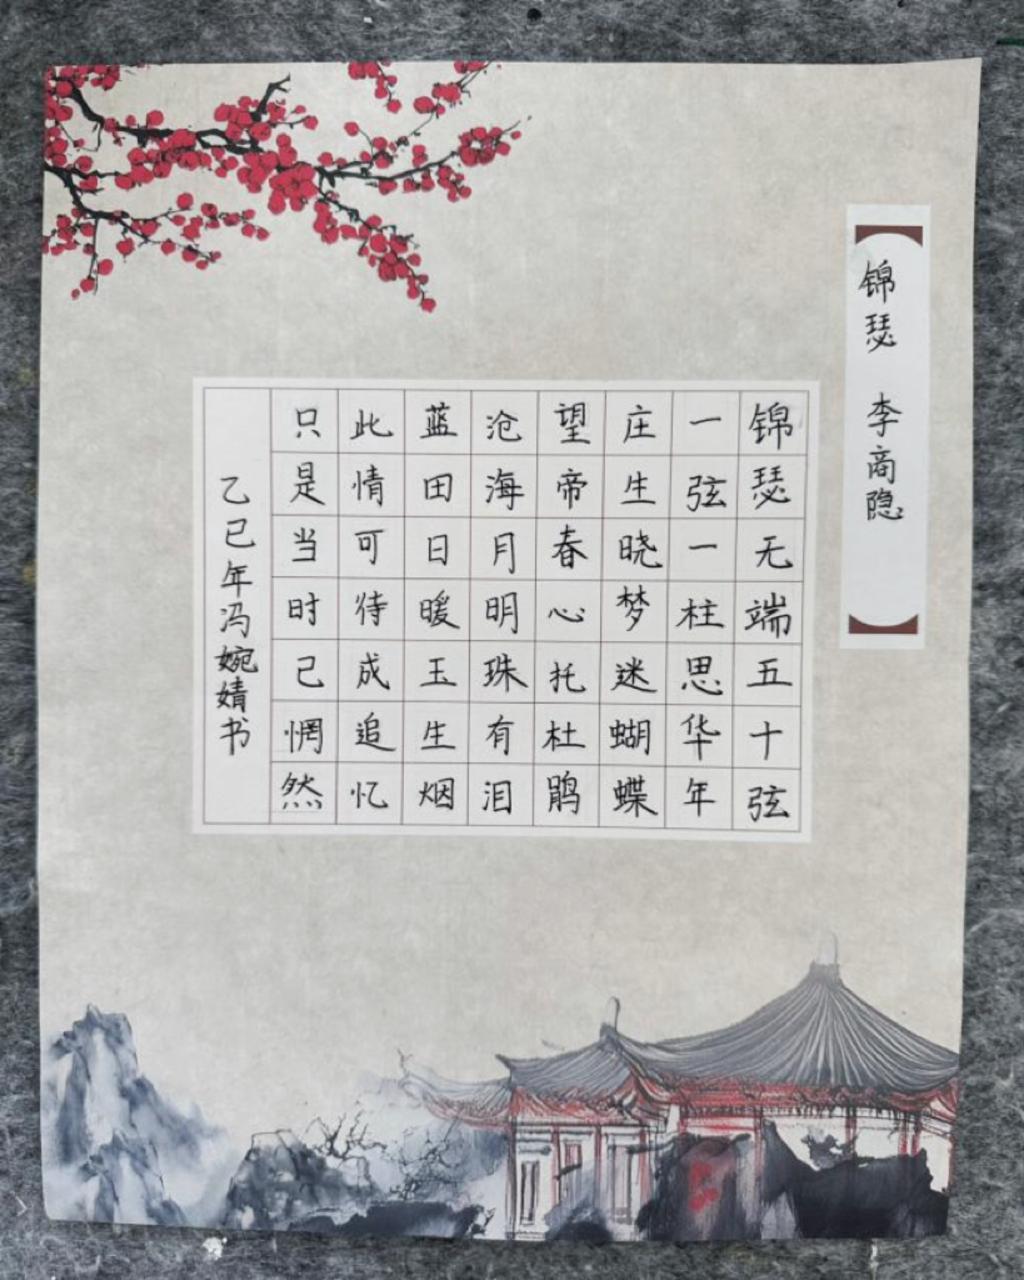 锦瑟 李商隐
锦瑟无端五十弦
一弦一柱思华年
庄生晓梦迷蝴蝶
望帝春心托杜鹃
沧海月明珠有泪
蓝田日暖玉生烟
此情可待成追忆
只是当时己惘然
乙巳年冯婉婧书